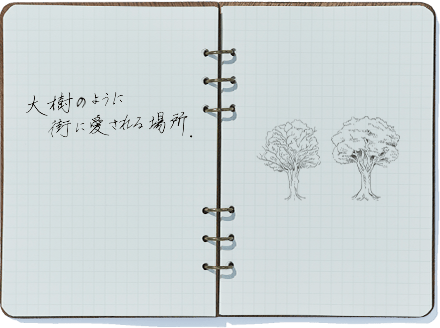 大樹のように
街に愛される場所.